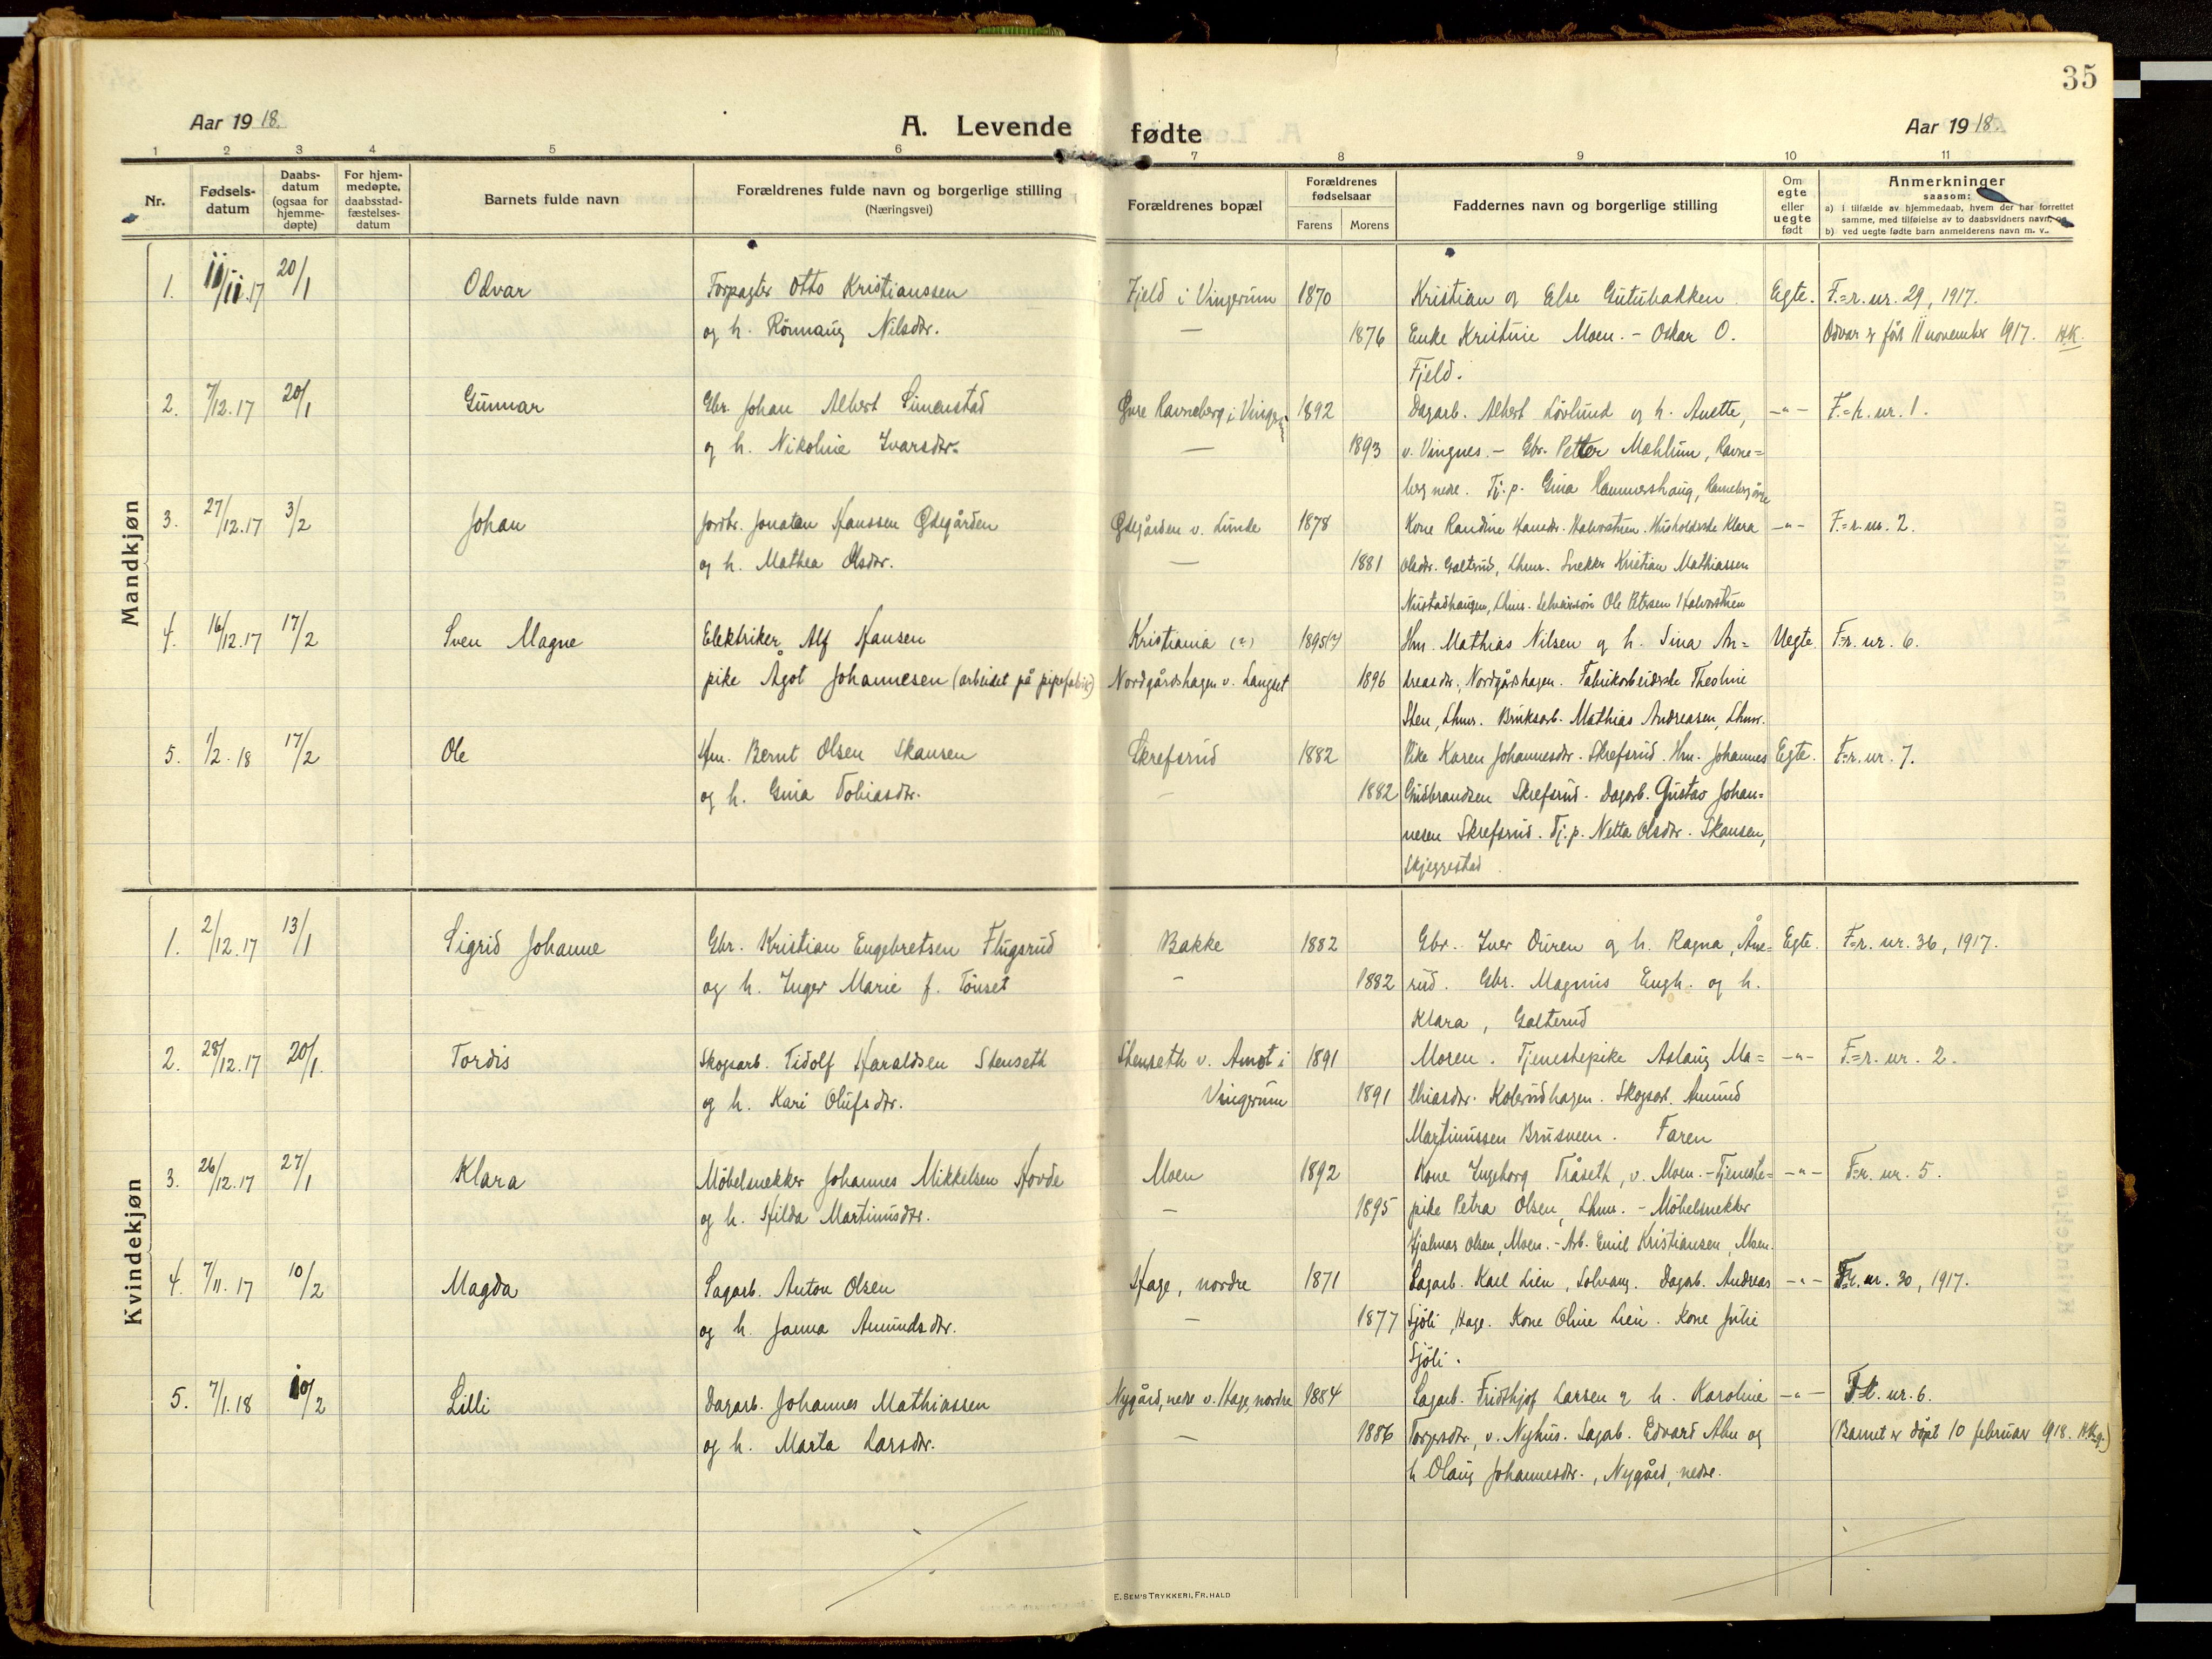 35
Aar 1918.
A. Levende fødte
Aar 1918.
1 2 3 4 5 6 7 8 9 10 11
Nr.
Fødsels-
datum
Daabs-
datum
(ogsaa for
hjemme-
døpte)
For hjem-
medøpte,
daabsstad-
fæstelses-
datum
Barnets fulde navn
Forældrenes fulde navn og borgerlige stilling
(Næringsvei)
Forældrenes bopæl
Forældrenes
fødselsaar
Farens Morens
Faddernes navn og borgerlige stilling
Om
egte
eller
uegte
født
Anmerkninger
saasom:
a) i tilfælde av hjemmedaab, hvem der har forrettet
samme, med tilføielse av to daabsvidners navn, og
b) ved uegte fødte barn anmelderens navn m. v.
Mandkjøn
1. 11/11.17 20/1 Odvar Forpagter Otto Kristianssen Fjeld i Vingerum 1870 Kristian og Else Gutubakken Egte. F.=r. nr. 29, 1917.
og h. Rönnaug Nilsdtr. — 1876 Enke Kristine Moen. - Oskar O. Odvar er född 11 november 1917. H.K.
Fjeld.
2. 7/12.17 20/1 Gunnar Gbr. Johan Albert Simenstad Øvre Ravneberg i Vingrum 1892 Dagarb. Albert Lövlund og h. Anette, -"- F.=r. nr. 1.
og h. Nikoline Ivarsdtr. — 1893 v. Vingnes. - Gbr. Petter Mæhlum, Ravne=
berg nedre. Tj.p. Gina Hammershaug, Ravneberg övre
3. 27/12.17 3/2 Johan Jordbr. Jonatan Hanssen Ødegården Ødegården v. Lunde 1878 Kone Randine Hansdr. Halvorstuen. Husholderske Klara -"- F.=r. nr. 2.
og h. Mathea Olsdtr. — 1881 Olsdtr. Galterud, Lhmr. Snekker Kristian Mathiassen
Nustadhaugen, Lhmr. Selveiersön Ole Petersen Halvorstuen
4. 16/12.17 17/2 Sven Magne Elektriker Alf Hansen Kristiania (?) 1895(?) Hm. Mathias Nilsen og h. Sina An= Uegte F=r. nr. 6.
pike Ågot Johannesen (arbeidet på pipefabrik) Nordgårdshagen v. Langset 1896 dreasdtr., Nordgårdshagen. Fabrikarbeiderske Theoline
Sten, Lhmr. Bruksarb. Mathias Andreasen, Lhmr.
5. 1/2.18 17/2 Ole Hm. Bernt Olsen Skansen Skrefsrud 1882 Pike Karen Johannesdtr. Skrefsrud. Hm. Johannes Egte. F=r. nr. 7.
og h. Gina Tobiasdtr. — 1882 Gudbrandsen Skrefsrud. Dagarb. Gustav Johan=
nesen Skrefsrud. Tj.p. Netta Olsdtr. Skansen,
Skjeggestad.
Kvindekjøn
1. 2/12.17 13/1 Sigrid Johanne Gbr. Kristian Engebretsen Flugsrud Bakke 1882 Gbr. Iver Duren og h. Ragna, Åne= Egte. F=r. nr. 36, 1917.
og h. Inger Marie f. Tönset — 1882 rud. Gbr. Magnus Engh. og h.
Klara, Galterud
2. 28/12.17 20/1. Tordis Skogsarb. Tidolf Haraldsen Stenseth Stenseth v. Amot i 1891 Moren. Tjenestepike Aslaug Ma= -"- F.=r. nr. 2.
og h. Kari Olufsdtr. Vingerum 1891 thiasdtr. Kolerudhagen. Skogsarb. Amund
Martinussen Brusveen. Faren
3. 26/12.17 27/1 Klara Möbelsnekker Johannes Mikkelsen Hovde Moen 1892 Kone Ingeborg Tråseth, v. Moen. - Tjeneste= -"- F=r. nr. 5.
og h. Hilda Martinusdtr. — 1895 pike Petra Olsen, Lhmr. - Möbelsnekker
Hjalmar Olsen, Moen. - Arb. Emil Kristiansen, Moen.
4. 7/11.17 10/2 Magda Sagarb. Anton Olsen Hage, nordre 1871 Sagarb. Karl Lien, Solvang. Dagarb. Andreas -"- F=r. nr. 30, 1917.
og h. Janna Amundsdtr. — 1877 Sjöli, Hage. Kone Oline Lien. Kone Julie
Sjöli.
5. 7/1.18 10/2 Lilli Dagarb. Johannes Mathiassen Nygård, nedre v. Hage, nordre 1884 Sagarb. Fridthjof Larsen og h. Karoline -"- F=r. nr. 6.
og h. Marta Larsdtr. — 1886 Torgersdtr., v. Nyhus. Sagarb. Edvard Alm og (Barnet er döpt 10 februar 1918. H.K.g.)
h Olaug Johannesdtr., Nygård, nedre.
E. SEM'S TRYKKERI, FR.HALD